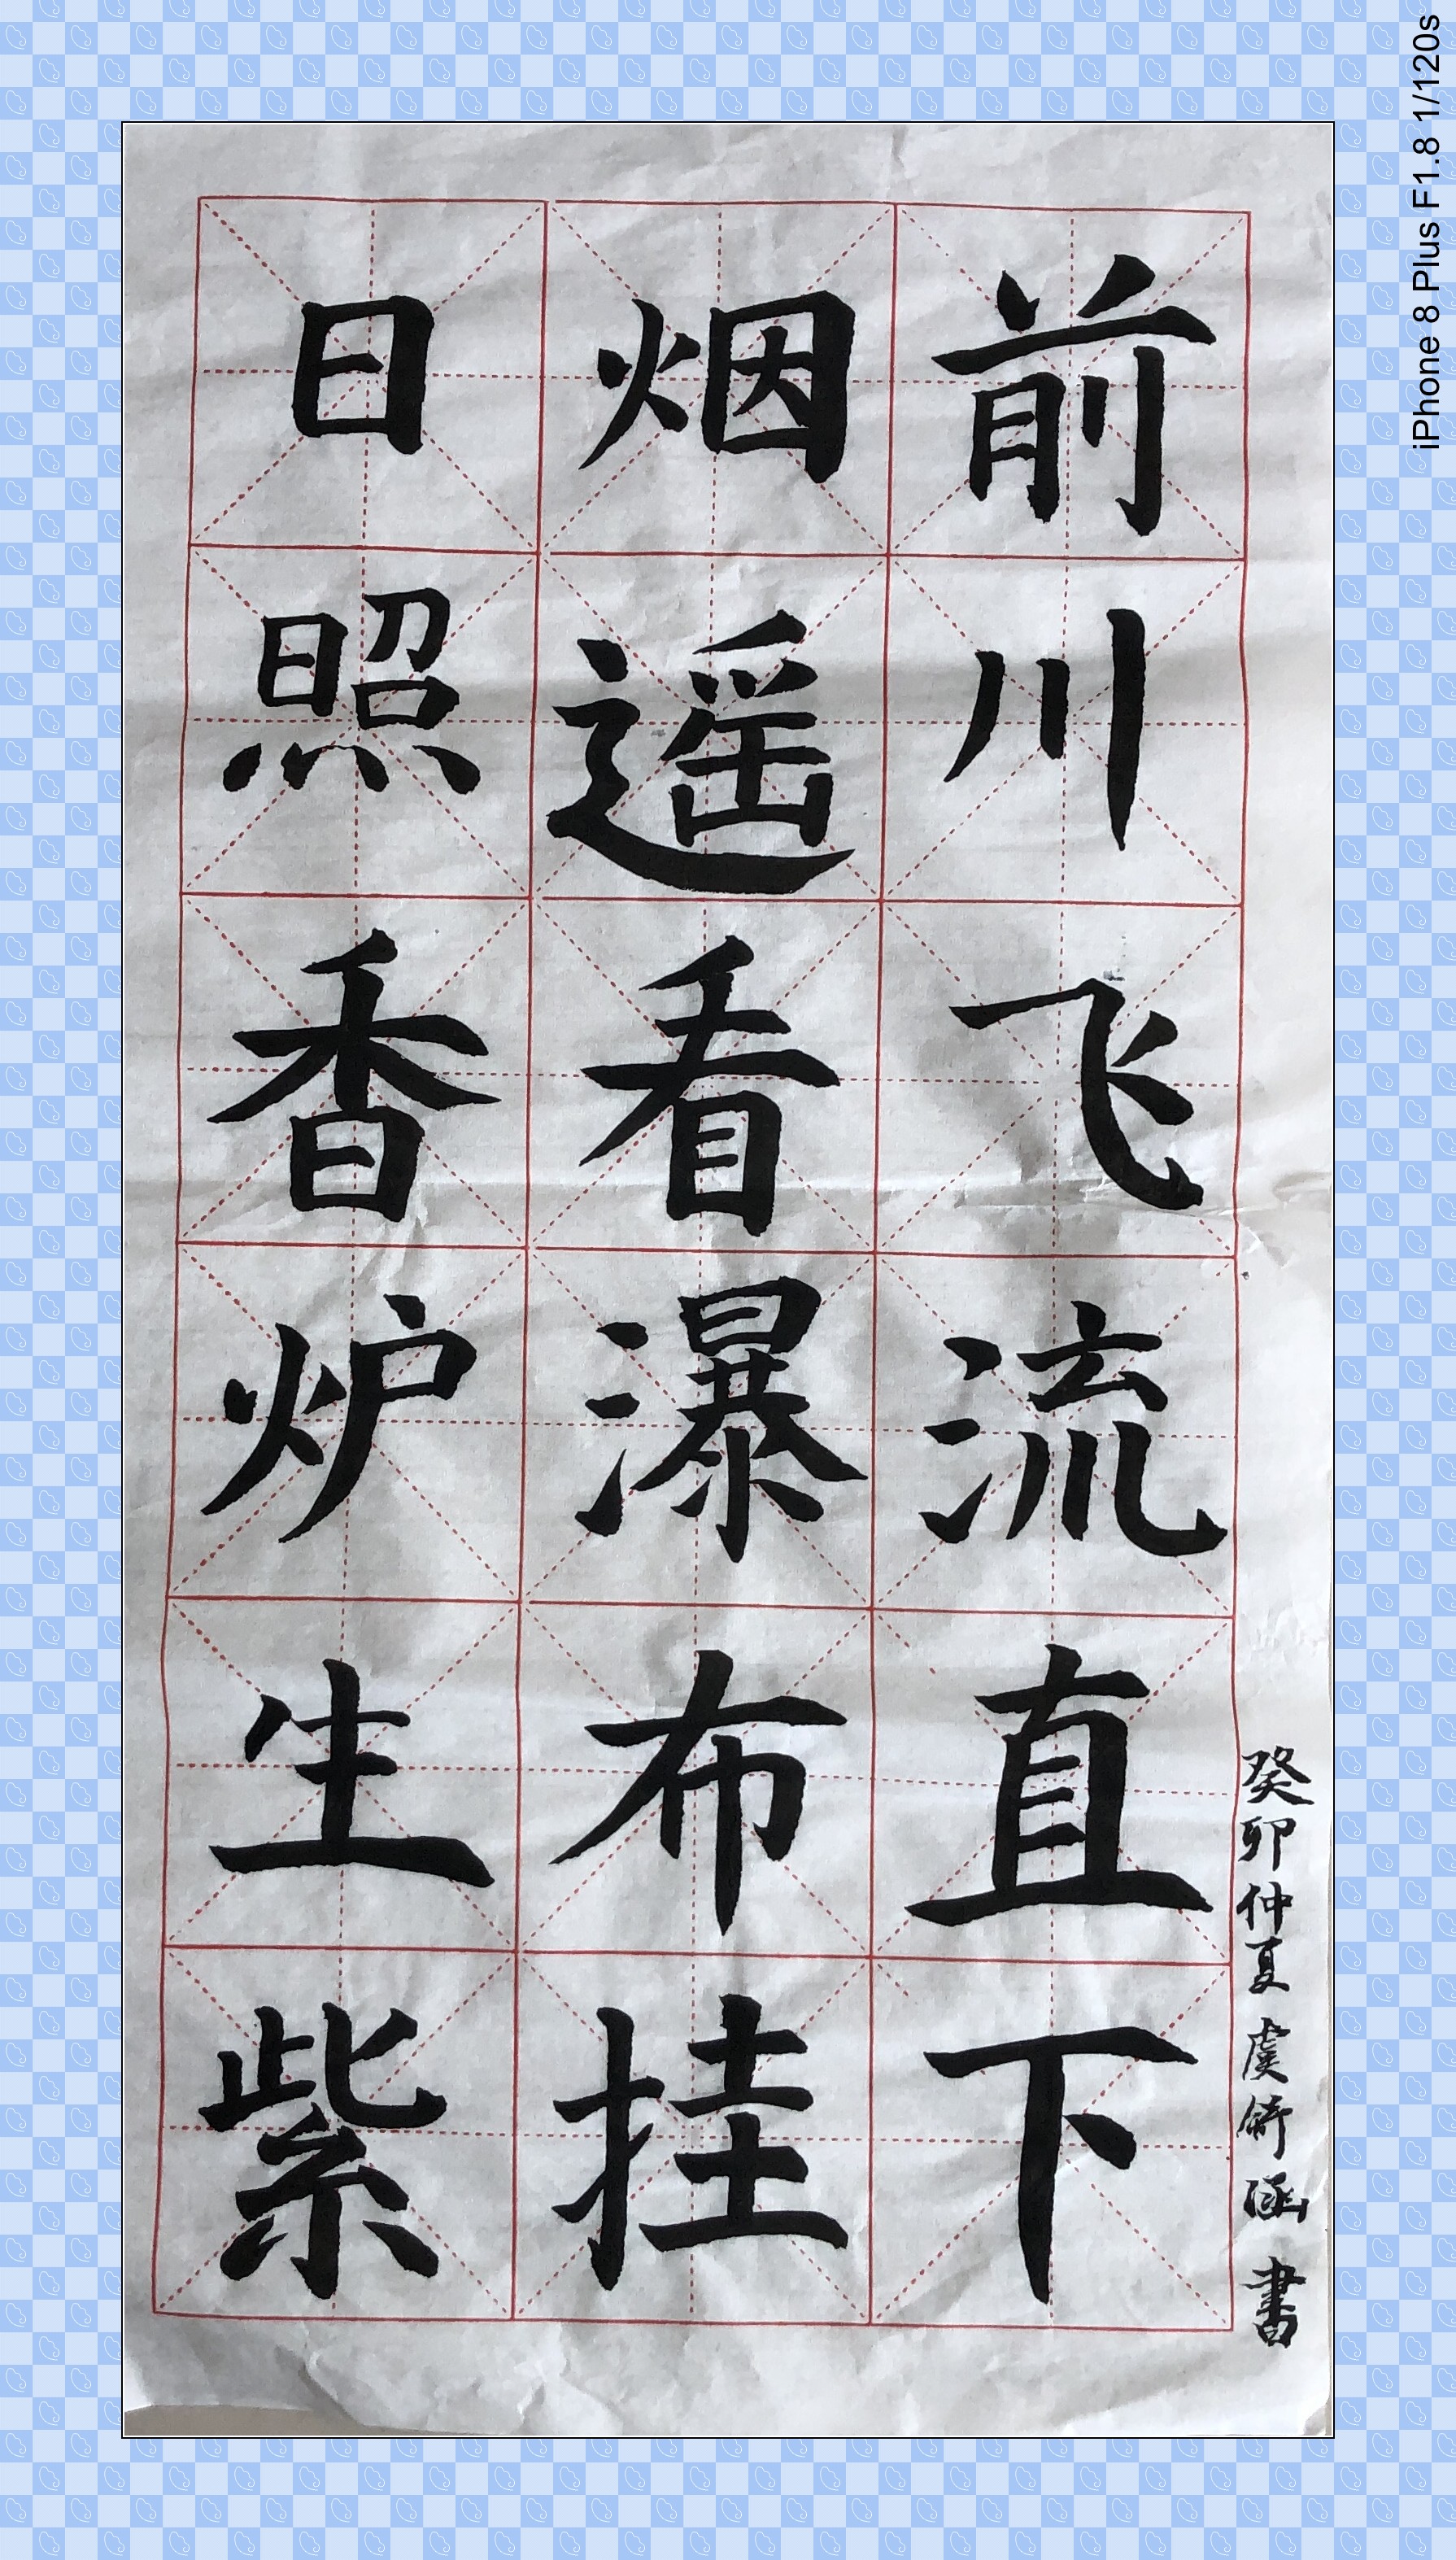 日照香炉生紫
烟遥看瀑布挂
前川飞流直下
癸卯仲夏虞舒涵書
iPhone 8 Plus F1.8 1/120s